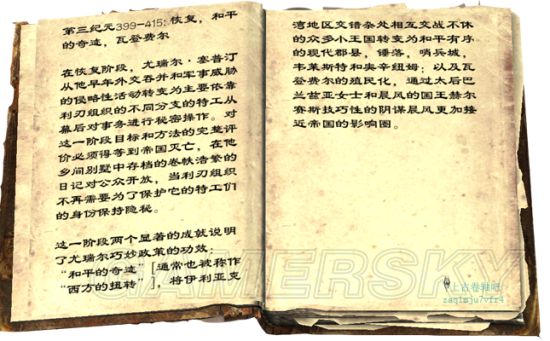 第三纪元399-415:恢复,和平
的奇迹,瓦登费尔
在恢复阶段,尤瑞尔·塞普汀
从他早年外交吞并和军事威胁
的侵略性活动转变为主要依靠
利刃组织的不同分支的特工从
幕后对事务进行秘密操作。对
这一阶段目标和方法的完整评
价必须得等到帝国灭亡,在他
乡间别墅中存档的卷帙浩繁的
日记对公众开放,当利刃组织
不再需要为了保护它的特工们
的身份保持隐秘。
这一阶段两个显著的成就说明
了尤瑞尔巧妙政策的功效:
“和平的奇迹”[通常也被称作
“西方的扭转”],将伊利亚克
湾地区交错杂处相互交战不休
的众多小王国转变为和平有序
的现代郡县,锤落,哨兵城,
韦莱斯特和奥辛纽姆;以及瓦
登费尔的殖民化,通过太后巴
兰兹亚女士和晨风的国王赫尔
赛斯技巧性的阴谋晨风更加接
近帝国的影响圈。
GAMERSKY
上古卷轴吧
zaq1mju7vfr4